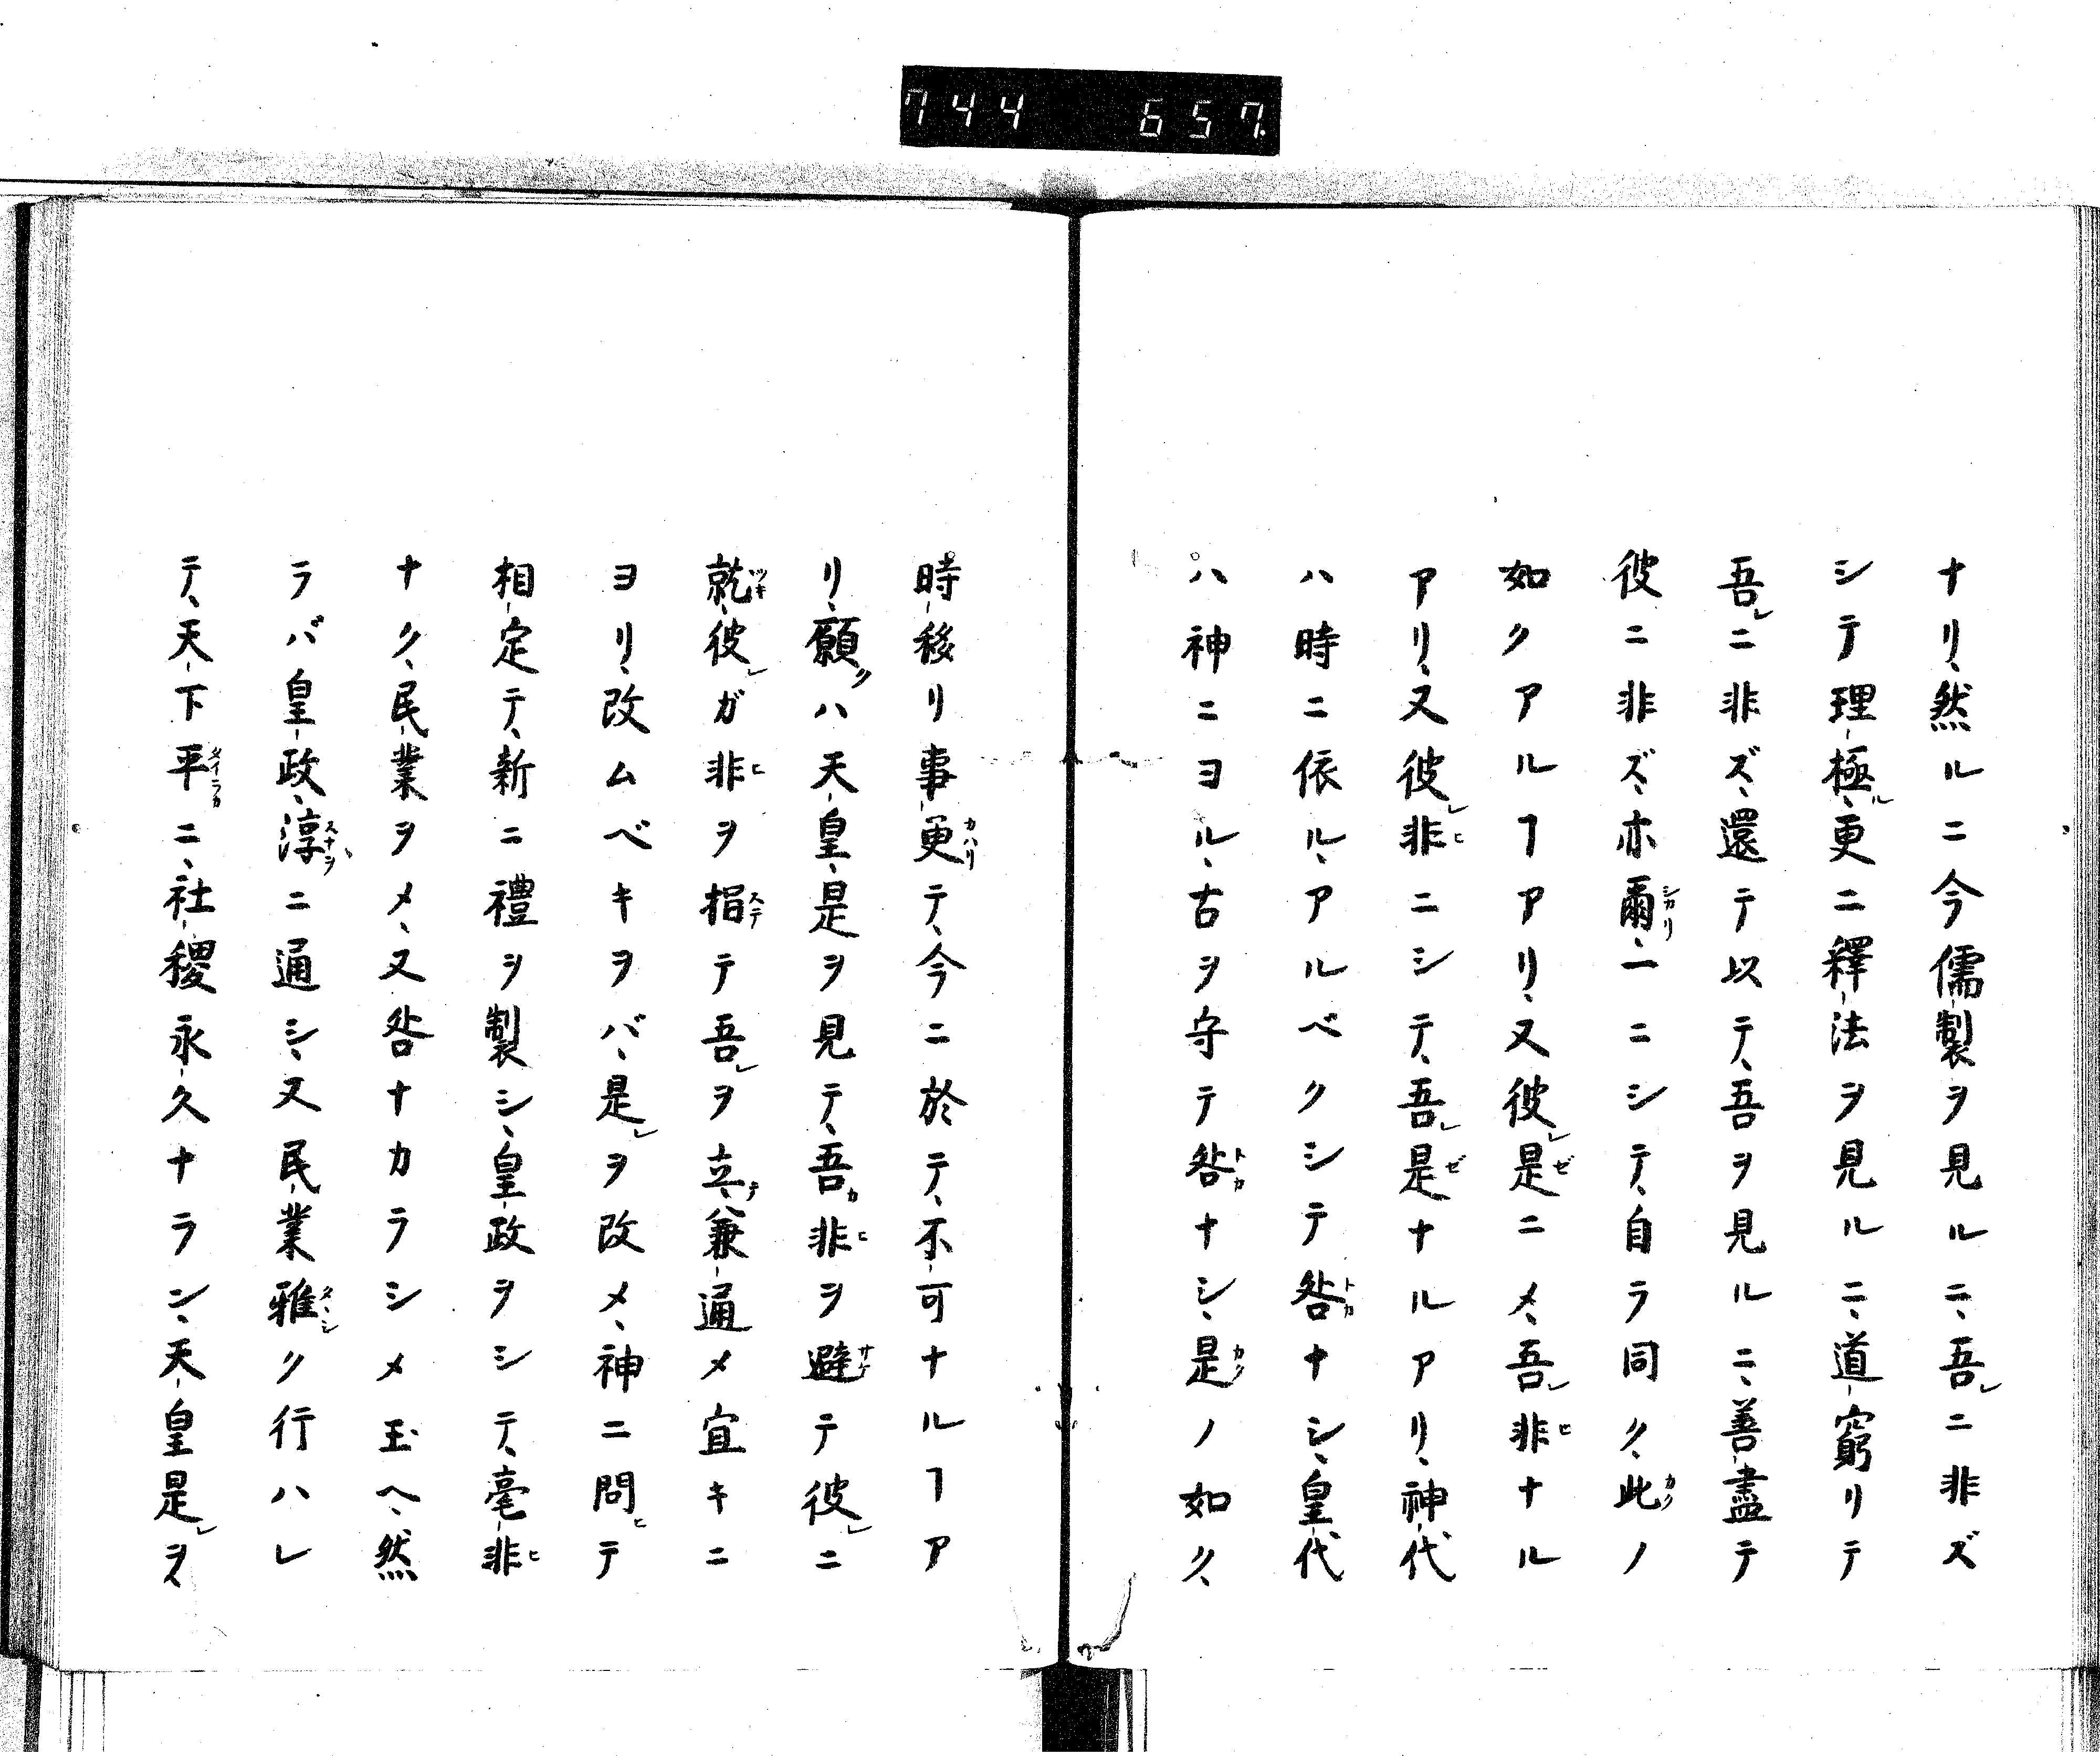 744 657.
ナリ、然ルニ今儒製ヲ見ルニ、吾レニ非ズ
シテ理極ル、更ニ釋法ヲ見ルニ、道窮リテ
吾レニ非ズ、還テ以テ、吾ヲ見ルニ、善盡テ
彼ニ非ズ、亦爾シカリ、一ニシテ、自ラ同ク、此カクノ
如クアルヿアリ、又彼レ是ゼニメ、吾レ非ヒナル
アリ、又彼レ非ヒニシテ、吾レ是ゼナルアリ、神代
ハ時ニ依ル、アルベクシテ咎トカナシ、皇代
ハ神ニヨル、古ヲ守テ咎トカナシ、是カクノ如ク、
時移リ事更カハリテ、今ニ於テ、不可ナルヿア
リ、願クハ天皇、是ヲ見テ、吾カ非ヒヲ避サケテ彼レニ
就ツキ、彼レガ非ヒヲ捐ステテ吾レヲ立テ、兼通メ宜キニ
ヨリ、改ムベキヲバ、是レヲ改メ、神ニ問ヒテ
相定テ、新ニ禮ヲ製シ、皇政ヲシテ、毫非ヒ
ナク、民業ヲメ、又咎ナカラシメ玉ヘ、然
ラバ皇政、淳スナヲニ通シ、又民業雅タヽシク行ハレ
テ、天下平タイラカニ、社稷永久ナラン、天皇是レヲ